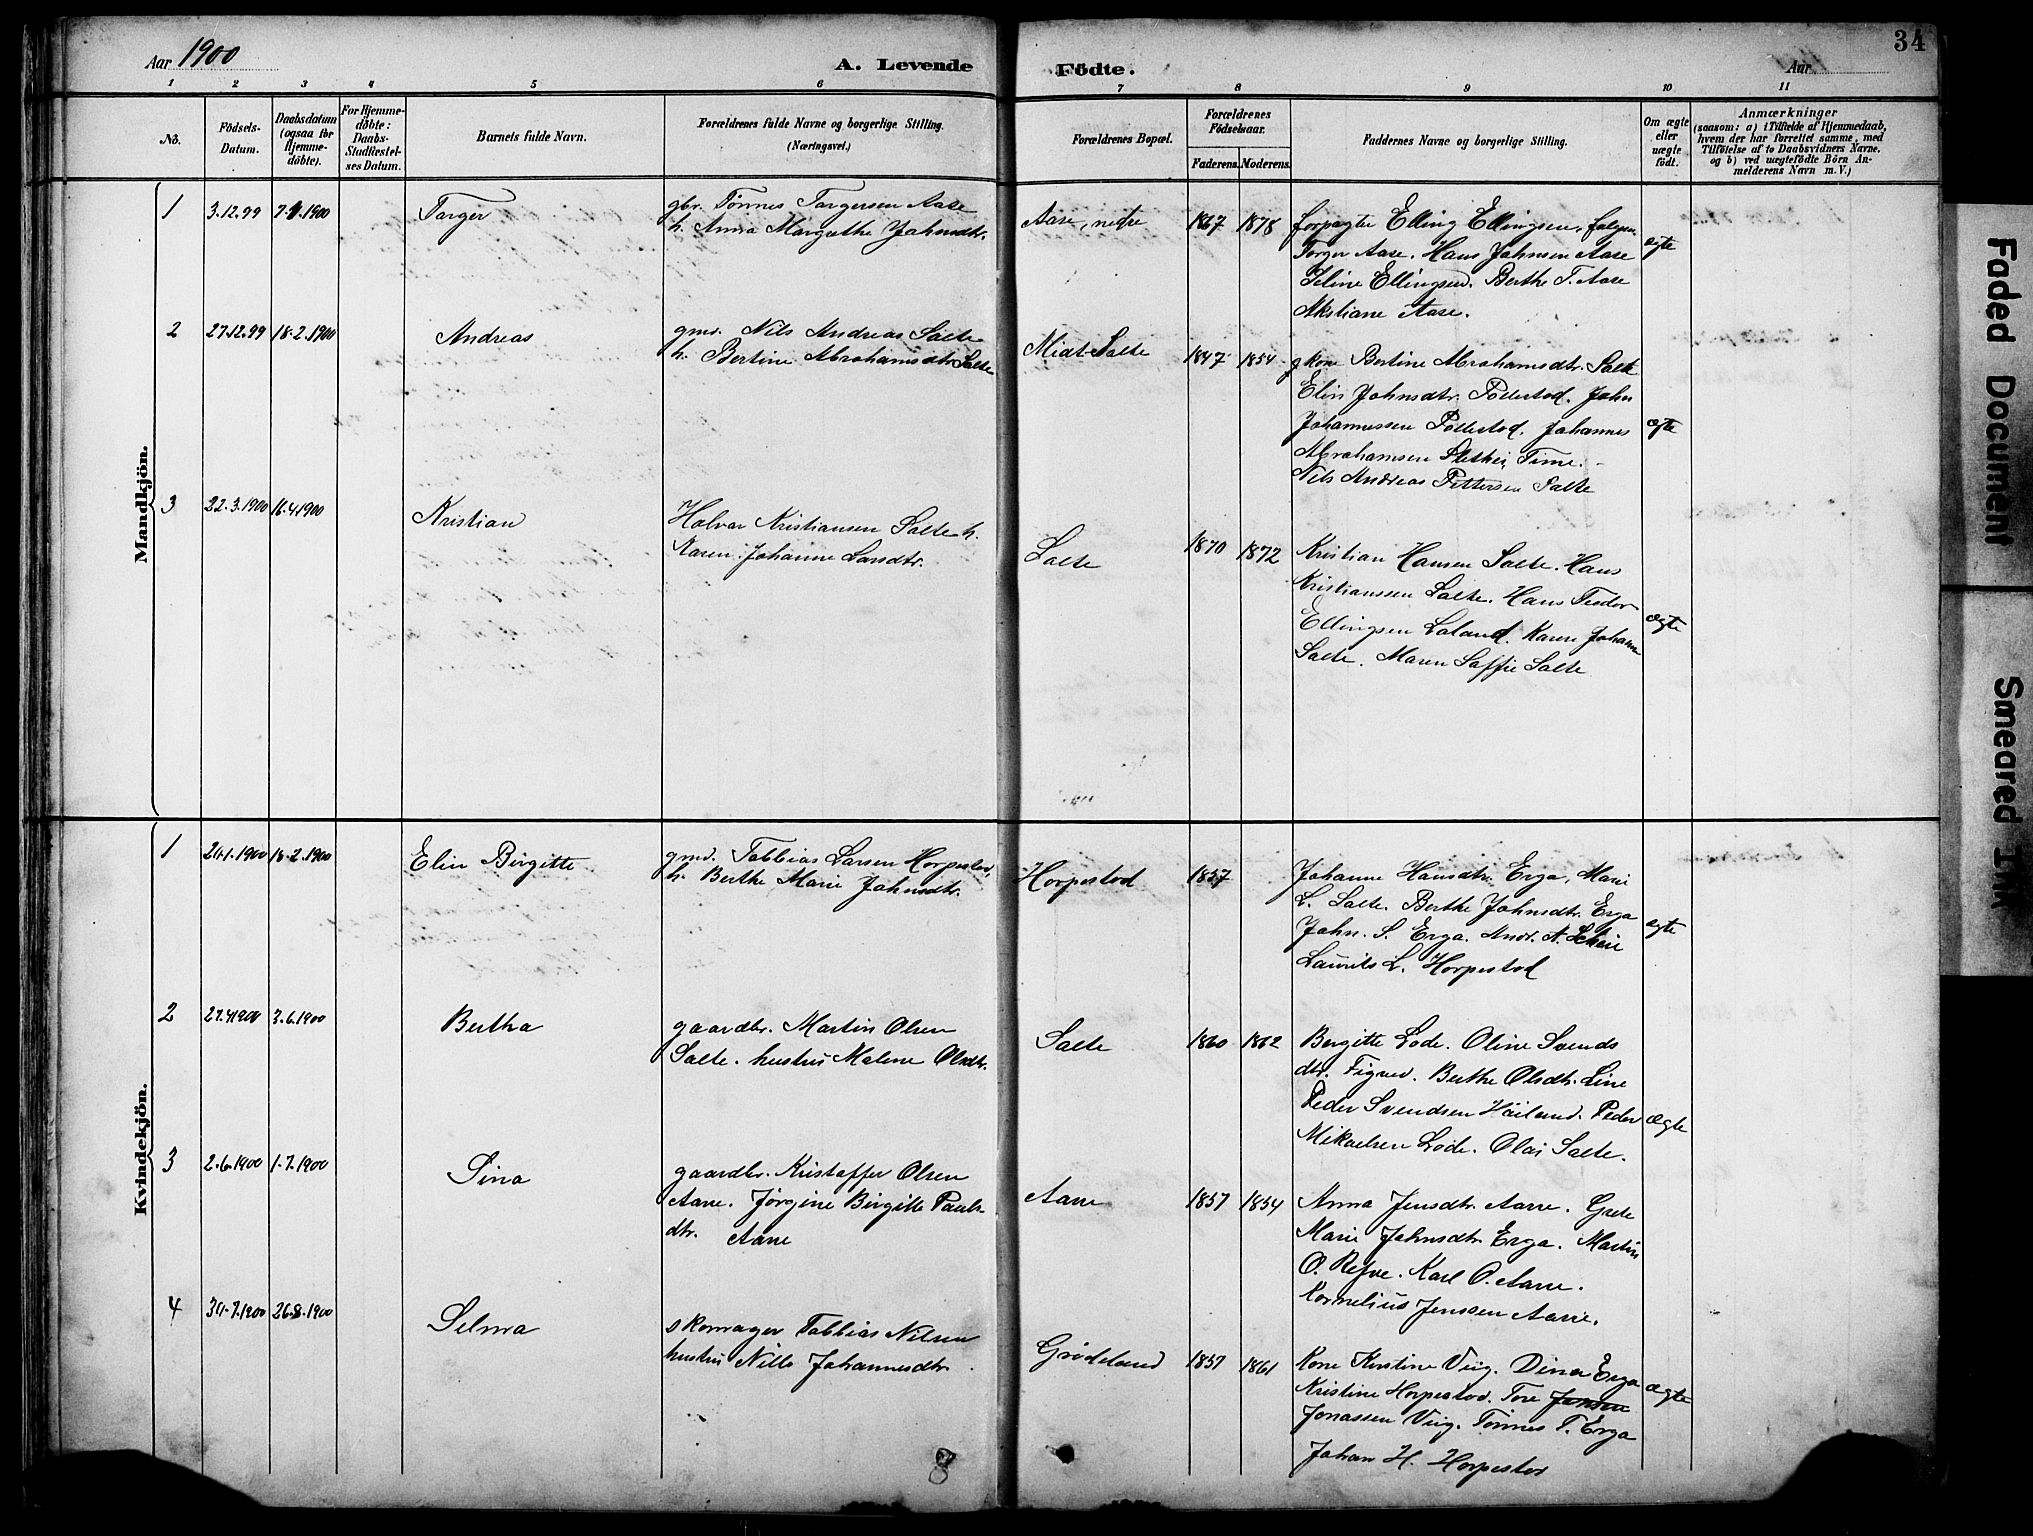 Aar 1900
A. Levende Födte.
Aar
34
1 2 3 4 5 6 7 8 9 10 11
No.
Födsels-Datum.
Daabsdatum (ogsaa for Hjemme-döbte).
For Hjemme-döbte: Daabs-Stadfæstel-ses Datum.
Barnets fulde Navn.
Forældrenes fulde Navne og borgerlige Stilling. (Næringsvei.)
Forældrenes Bopæl.
Forældrenes Födselsaar.
Faderens. Moderens.
Faddernes Navne og borgerlige Stilling.
Om ægte eller uægte födt.
Anmærkninger
(saasom: a) i Tilfælde af Hjemmedaab,
hvem der har forrettet samme, med
Tilföielse af to Daabsvidners Navne,
og b) ved uægtefödte Börn An-
melderens Navn m.V.)
Mandkjön.
1 3.12.99 7.1.1900 Torger
gbr. Tönnes Torgersen Aase
h. Anna Margrethe Johnsdtr.
Aase, nedre 1867 1878
forpagter Elling Ellingsen,
Torger Aase. Hans Johnsen Aase
Seline Ellingsen. Berthe T. Aase
Aase.
ægte
2 27.12.99 18.2.1900 Andreas
gmd. Nils Andreas Salte
h. Bertine Abrahamsdtr. Salte
Midt-Salte 1847 1854
gkone Bertine Abrahamsdtr. Salte
Elin Johnsdtr. Pollestad. John
Johannessen Pollestad. Johannes
Abrahamsen Time.
Nils Andreas Pettersen Salte
ægte
3 22.3.1900 16.4.1900 Kristian
Halvar Kristiansen Salte h.
Karen Johanne Larsdtr.
Salte 1870 1872
Kristian Hansen Salte. Hans
Kristianssen Salte. Hans Teodor
Ellingsen Laland. Karen Johanne
Salte. Maren Saffie Salte
ægte
Kvindekjön.
1 20.1.1900 18.2.1900 Elin Birgitte
gmd. Tobbias Larsen Horpestad,
h. Berthe Marie Johnsdtr.
Horpestad 1857
Johanne Hansdtr. Erga, Marie
L. Salte. Berthe Johnsdtr. Erga
John. S. Erga. Andr. A.
Laurits L. Horpestad
ægte
2 27.4.1900 3.6.1900 Bertha
gaardbr. Martin Olsen
Salte. hustru Malene Olsdtr.
Salte 1860 1862
Bergitte Lode. Oline Svends
dtr. Tigned. Berthe Olsdtr. Line
Peder Svendsen Häiland. Peder
Mikaelsen Lode. Olai Salte.
ægte
3 2.6.1900 1.7.1900 Sina
gaardbr. Kristoffer Olsen
Aarre. Jørgine Birgitte Pauls-
dtr. Aarre
Aarre 1857 1854
Anna Jensdtr. Aarre. Grete
Marie Johnsdtr. Erga. Martin
O. Refve. Karl O. Aarre.
Kornelius Jenssen Aarre.
4 30.7.1900 26.8.1900 Selma
skomager Tobbias Nilsen
hustru Nille Johannesdtr.
Grödeland 1857 1861
Kone Kirstine Viig. Dina Erga
Kristine Horpestad. Tore Jensen
Jonassen Viig. Tönnes T. Erga
Johan H. Horpestad
ægte
Faded Document
Smeared Ink